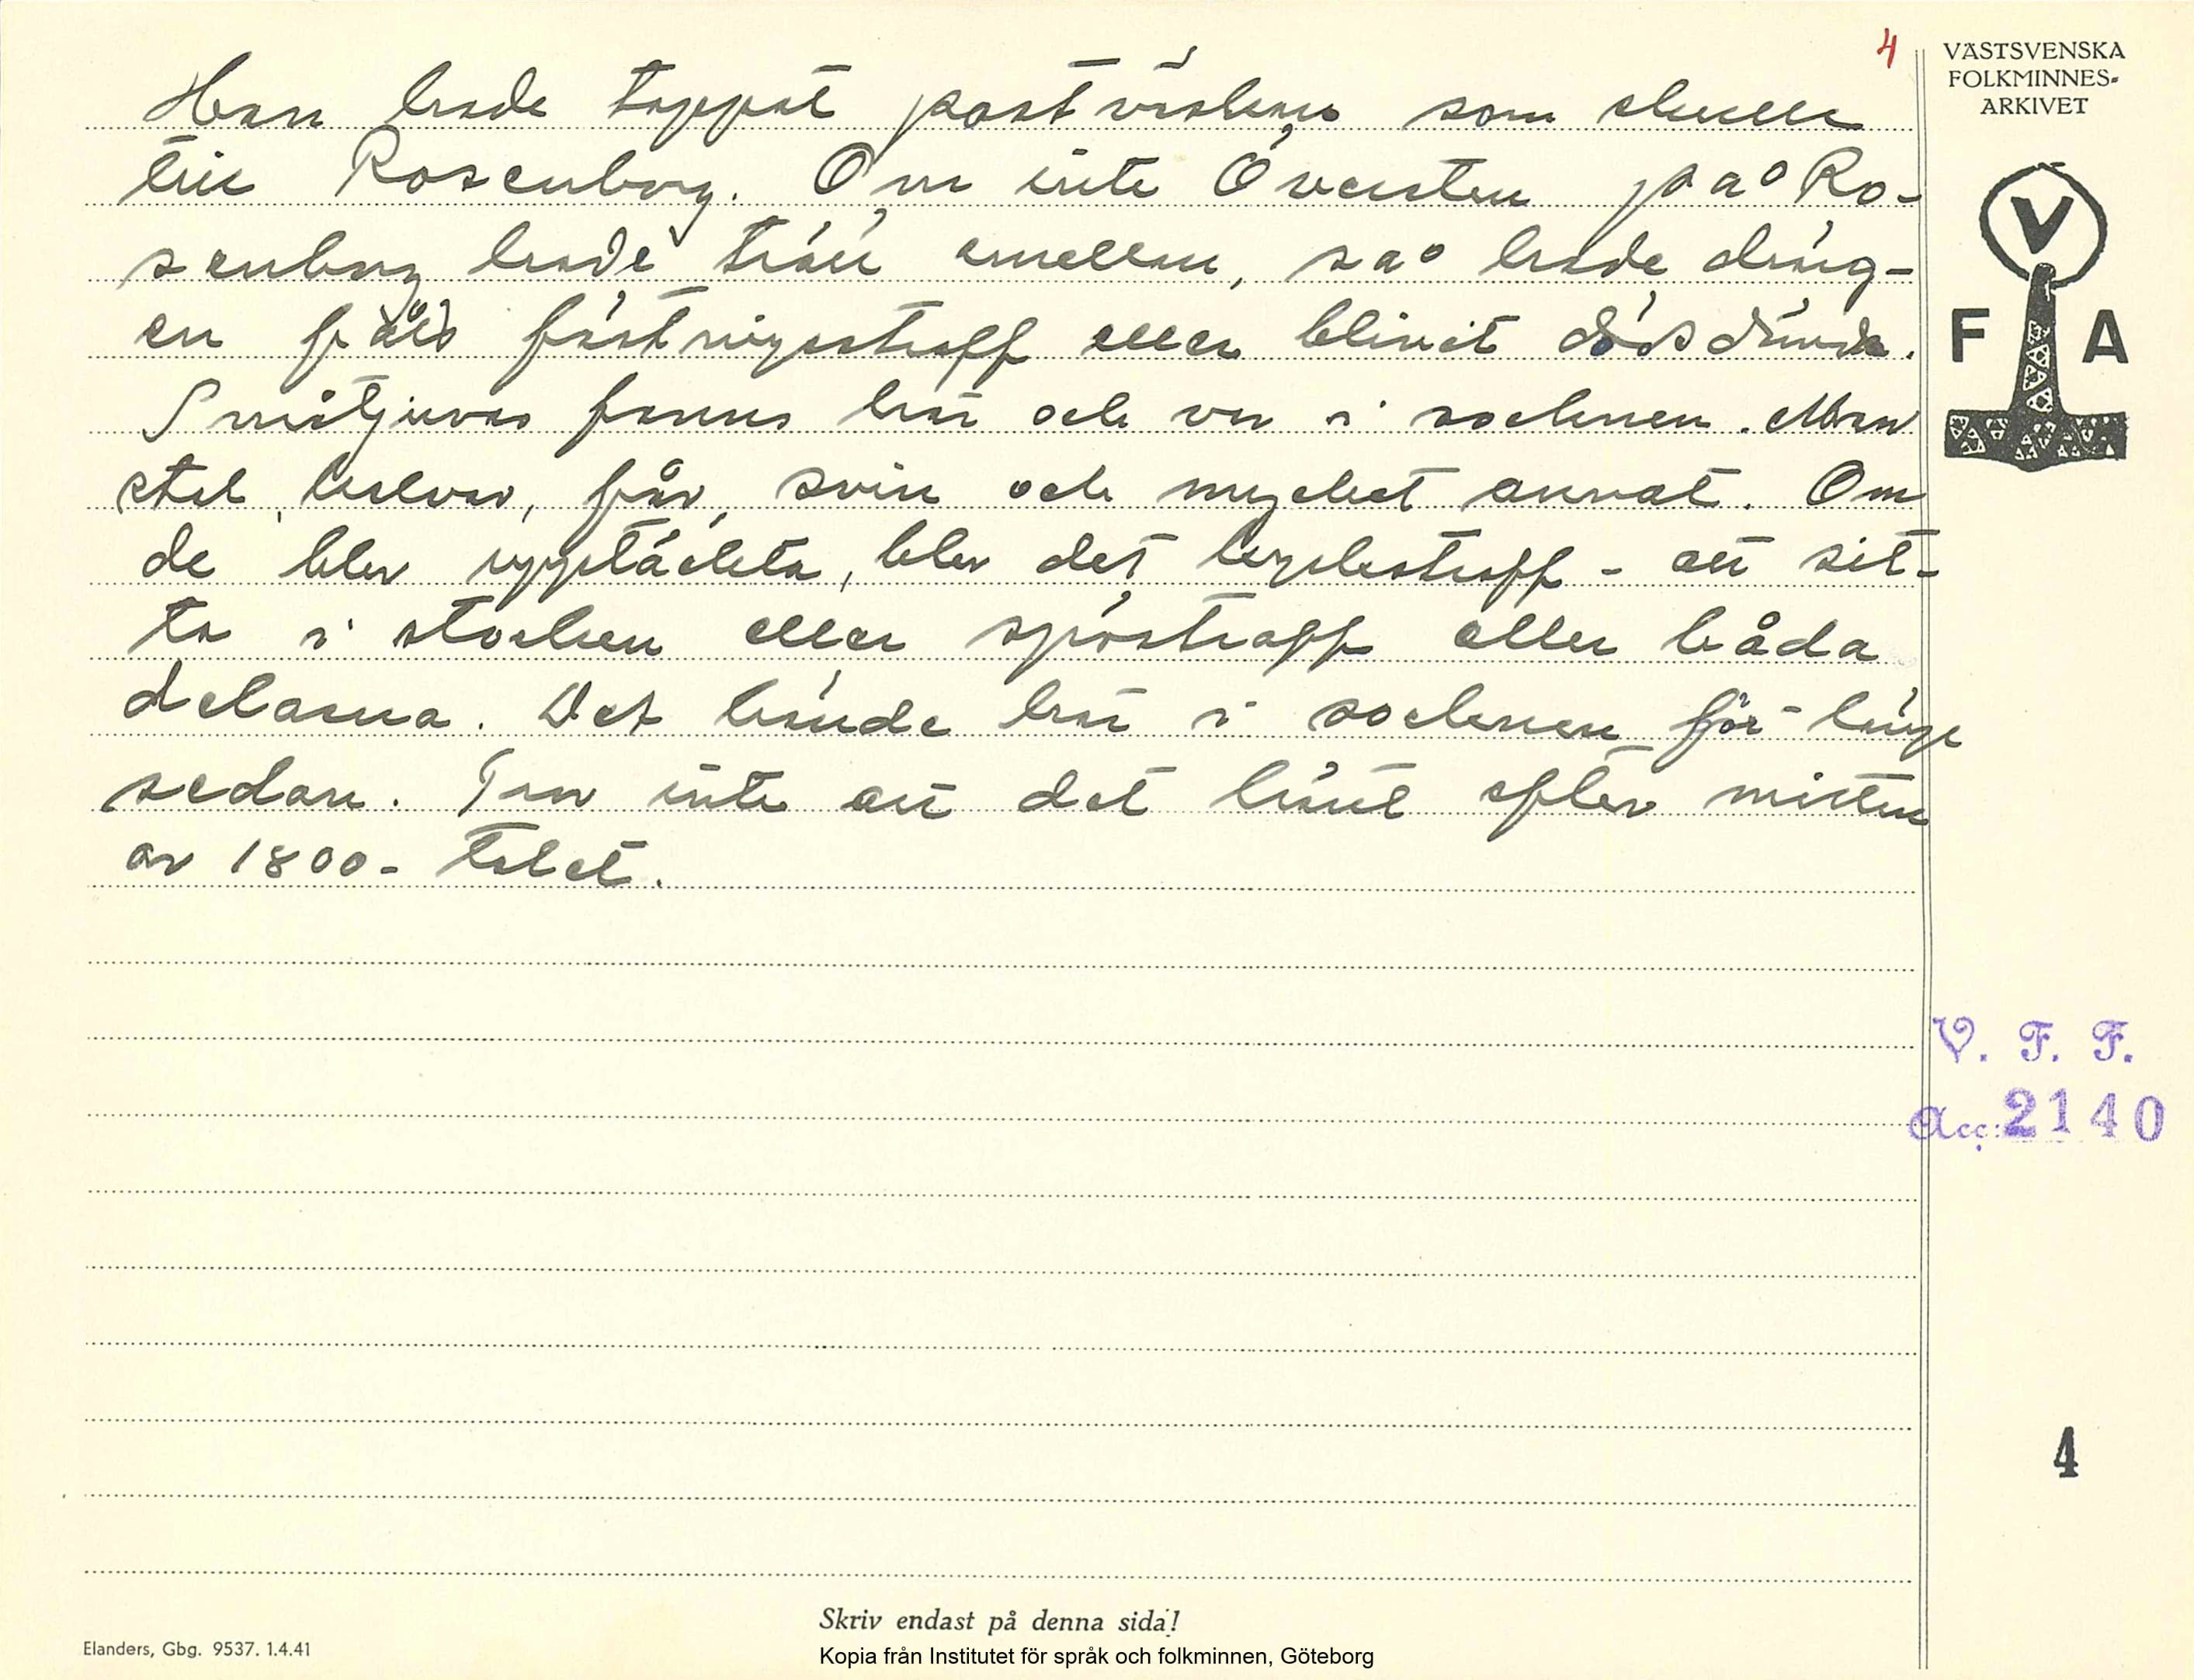 4
VÄSTSVENSKA
FOLKMINNES-
ARKIVET
V
F A
Han hade tappat postväskan som skulle
till Rosenborg. Om inte Översten på Ro-
senborg hade trätt emellan, så hade dräng-
en fått fästningsstraff eller blivit dödsdömd.
Småtjuvar fanns här och var i socknen. Man
stal kalvar, får, svin och mycket annat. Om
de blev upptäckta, blev det kyrkostraff - att sit-
ta i stocken eller spöstraff eller båda
delarna. Det hände här i socknen för länge
sedan. Tror inte att det hänt efter mitten
av 1800-talet.
V. F. F.
Acc. 2140
4
Skriv endast på denna sida!
Elanders, Gbg. 9537. 1.4.41
Kopia från Institutet för språk och folkminnen, Göteborg